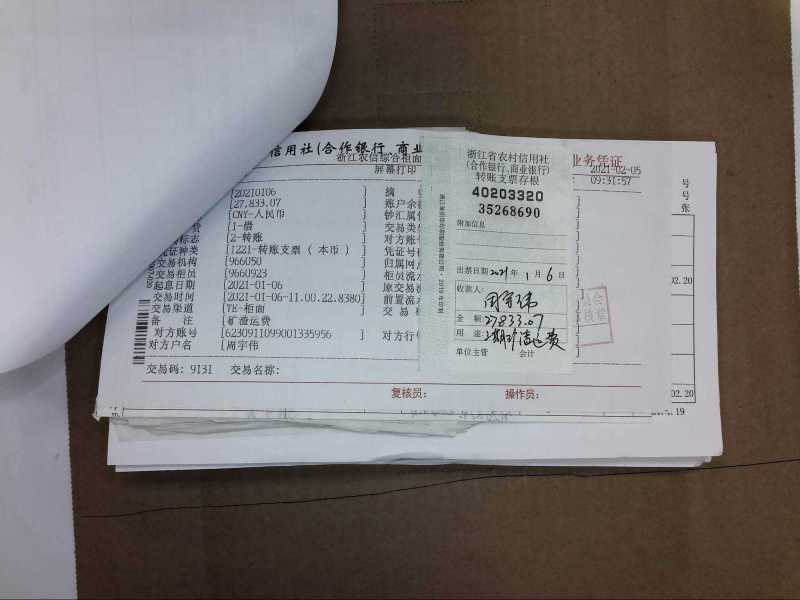 信用社(合作银行、商业
业务凭证
浙江农信综合柜面
2021-02-05
屏幕打印
09:31:57
[20210106 ] 摘
[27,833.07 ] 账户余
[CNY-人民币 ] 钞汇属
贷 [1-借 ] 交易类
标志 [2-转账 ] 对方账
凭证种类 [1221-转账支票(本币) ] 凭证号
交易机构 [966050 ] 归属网
交易柜员 [9660923 ] 柜员流水
起息日期 [2021-01-06 ] 原交易
交易时间 [2021-01-06-11.00.22.8380] 前置流水
交易渠道 [TE-柜面 ] 交易
备 注 [矿渣运费 ]
对方账号 [6230911099001335956 ] 对方行
对方户名 [周宇伟
交易码: 9131 交易名称:
复核员: 操作员:
浙江省农村信用社
(合作银行、商业银行)
转账支票存根
40203320
35268690
附加信息
出票日期2021年 1月 6日
收款人:
周宇伟
金 额:27833.07
用 途:2期矿渣运费
单位主管 会计
号
号
张
02.20
02.20
.19